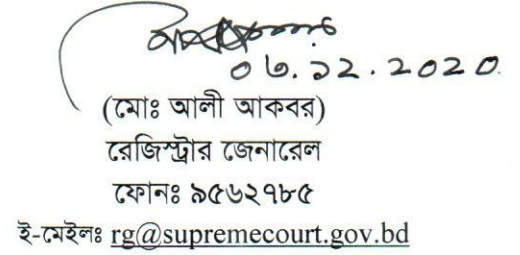 ০৬.১২.২০২০
(মোঃ আলী আকবর)
রেজিস্ট্রার জেনারেল
ফোনঃ ৯৫৬২৭৮৫
ই-মেইলঃ rg@supremecourt.gov.bd